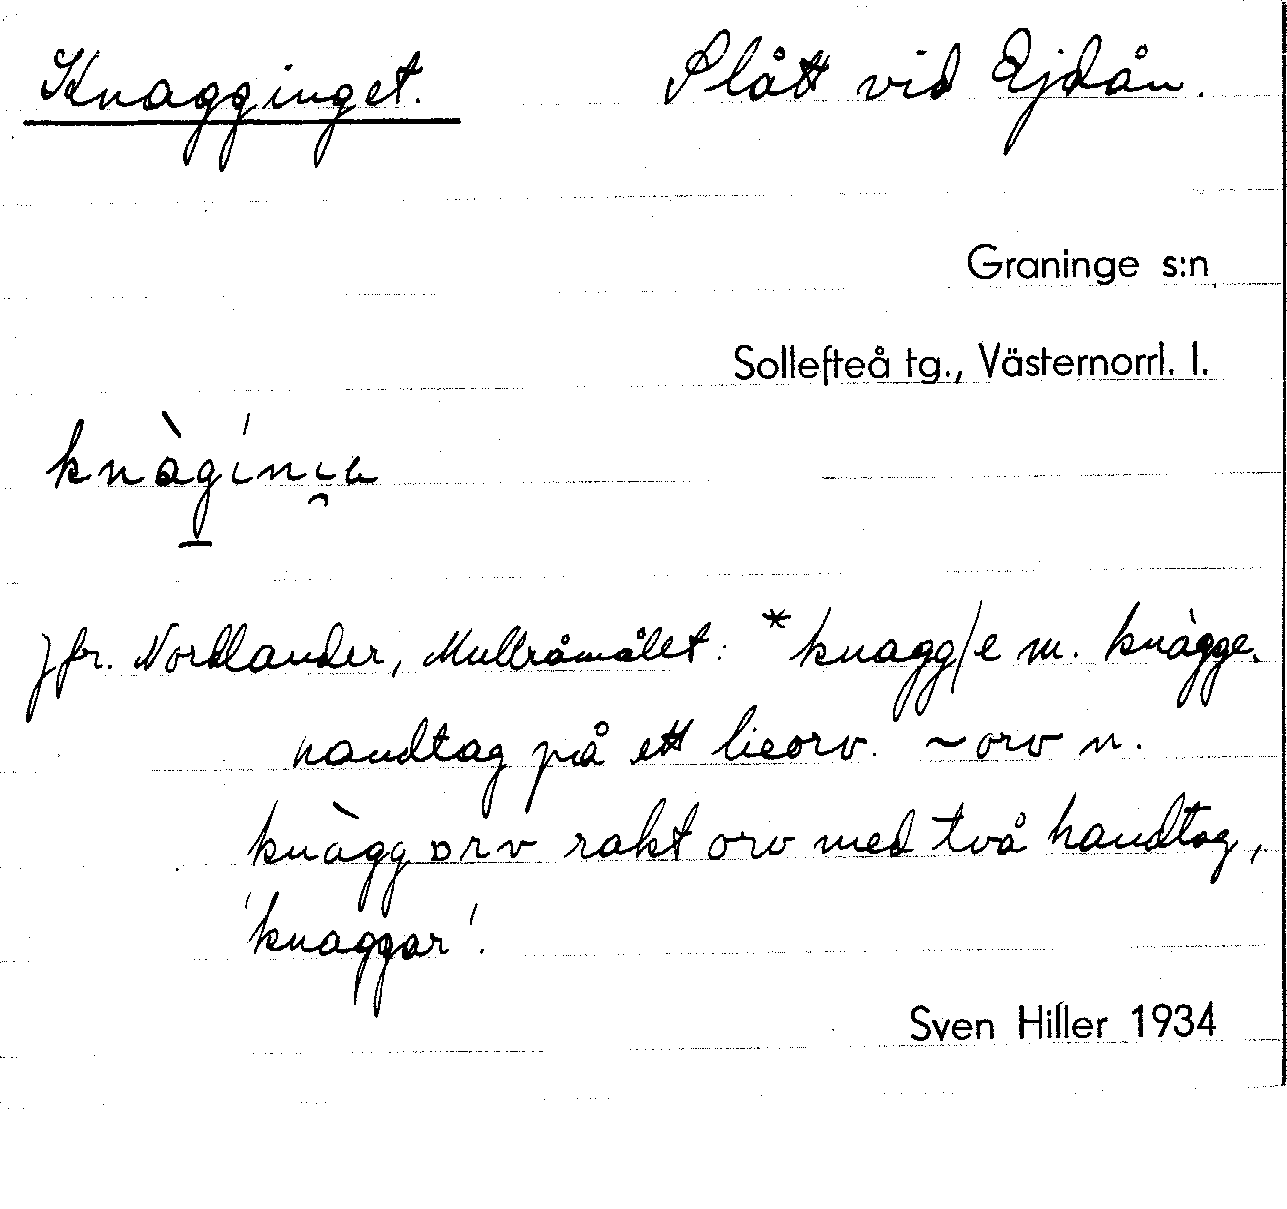 Knagginget. Slått vid Ejdån.
Graninge s:n
Sollefteå tg., Västernorrl. l.
jfr. Nordlander, Mullråmålet: *knagg/e m. knàgge.
handtag på ett lieorv. ~orv n.
knàggorv rakt orv med två handtag,
'knaggar'.
Sven Hiller 1934